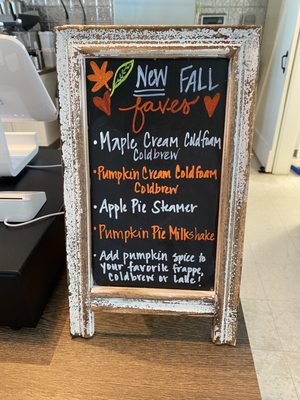 NEW FALL
faves
• Maple Cream Coldfoam
Coldbrew
• Pumpkin Cream Coldfoam
Coldbrew
• Apple Pie Steamer
• Pumpkin Pie Milkshake
• Add pumpkin spice to
your favorite frappe,
coldbrew or Latte!